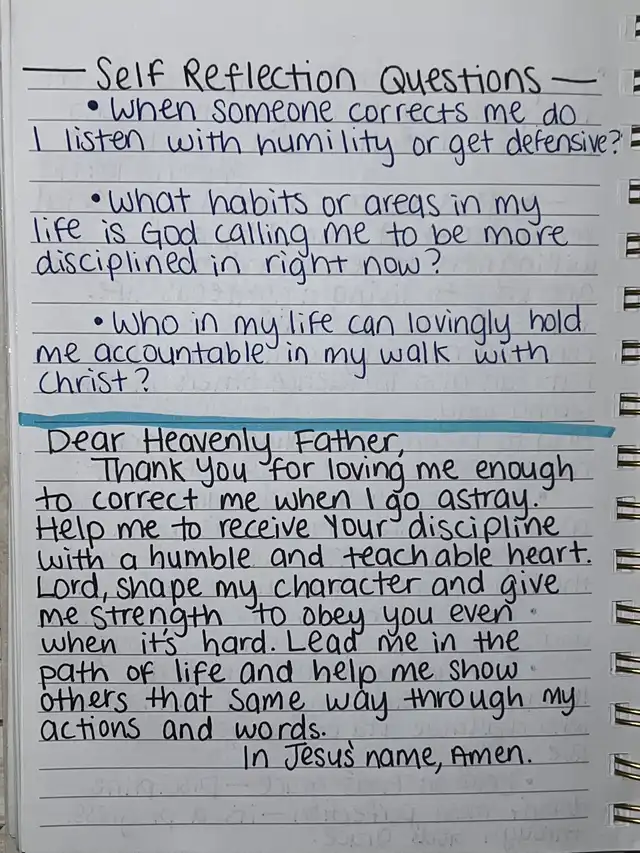 — Self Reflection Questions —
• When someone corrects me do
I listen with humility or get defensive?
• What habits or areas in my
life is God calling me to be more
disciplined in right now?
• Who in my life can lovingly hold
me accountable in my walk with
Christ?
Dear Heavenly Father,
Thank You for loving me enough
to correct me when I go astray.
Help me to receive Your discipline
with a humble and teachable heart.
Lord, shape my character and give
me strength to obey you even
when it's hard. Lead me in the
path of life and help me show
others that same way through my
actions and words.
In Jesus' name, Amen.